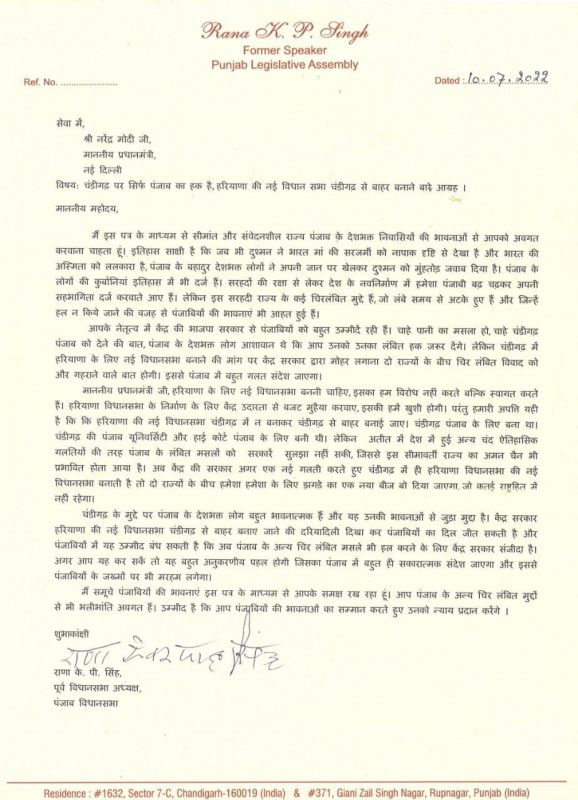 Rana K. P. Singh
Former Speaker
Punjab Legislative Assembly
Ref. No. ......................
Dated : 10.07.2022
सेवा में,
श्री नरेंद्र मोदी जी,
माननीय प्रधानमंत्री,
नई दिल्ली
विषय: चंडीगढ़ पर सिर्फ पंजाब का हक है, हरियाणा की नई विधान सभा चंडीगढ़ से बाहर बनाने बारे आग्रह ।
माननीय महोदय,
मैं इस पत्र के माध्यम से सीमांत और संवेदनशील राज्य पंजाब के देशभक्त निवासियों की भावनाओं से आपको अवगत
करवाना चाहता हूं। इतिहास साक्षी है कि जब भी दुश्मन ने भारत मां की सरजमीं को नापाक दृष्टि से देखा है और भारत की
अस्मिता को ललकारा है, पंजाब के बहादुर देशभक्त लोगों ने अपनी जान पर खेलकर दुश्मन को मुंहतोड़ जवाब दिया है। पंजाब के
लोगों की कुर्बानियां इतिहास में भी दर्ज हैं। सरहदों की रक्षा से लेकर देश के नवनिर्माण में हमेशा पंजाबी बढ़ चढ़कर अपनी
सहभागिता दर्ज करवाते आए हैं। लेकिन इस सरहदी राज्य के कई चिरलंबित मुद्दे हैं, जो लंबे समय से अटके हुए हैं और जिन्हें
हल न किये जाने की वजह से पंजाबियों की भावनाएं भी आहत हुई हैं।
आपके नेतृत्व में केंद्र की भाजपा सरकार से पंजाबियों को बहुत उम्मीदें रही हैं। चाहे पानी का मसला हो, चाहे चंडीगढ़
पंजाब को देने की बात, पंजाब के देशभक्त लोग आशावान थे कि आप उनको उनका लंबित हक जरूर देंगे। लेकिन चंडीगढ़ में
हरियाणा के लिए नई विधानसभा बनाने की मांग पर केंद्र सरकार द्वारा मोहर लगाना दो राज्यों के बीच चिर लंबित विवाद को
और गहराने वाले बात होगी। इससे पंजाब में बहुत गलत संदेश जाएगा।
माननीय प्रधानमंत्री जी, हरियाणा के लिए नई विधानसभा बननी चाहिए, इसका हम विरोध नहीं करते बल्कि स्वागत करते
हैं। हरियाणा विधानसभा के निर्माण के लिए केंद्र उदारता से बजट मुहैया करवाए, इसकी हमें खुशी होगी। परंतु हमारी अपत्ति यही
है कि कि हरियाणा की नई विधानसभा चंडीगढ़ में न बनाकर चंडीगढ़ से बाहर बनाई जाए। चंडीगढ़ पंजाब के लिए बना था।
चंडीगढ़ की पंजाब यूनिवर्सिटी और हाई कोर्ट पंजाब के लिए बनी थी। लेकिन अतीत में देश में हुई अन्य चंद ऐतिहासिक
गलतियों की तरह पंजाब के लंबित मसलों को सरकारें सुलझा नहीं सकी, जिससे इस सीमावर्ती राज्य का अमन चैन भी
प्रभावित होता आया है। अब केंद्र की सरकार अगर एक नई गलती करते हुए चंडीगढ़ में ही हरियाणा विधानसभा की नई
विधानसभा बनाती है तो दो राज्यों के बीच हमेशा हमेशा के लिए झगडे का एक नया बीज बो दिया जाएगा, जो कतई राष्ट्रहित में
नहीं रहेगा।
चंडीगढ़ के मुद्दे पर पंजाब के देशभक्त लोग बहुत भावनात्मक हैं और यह उनकी भावनाओं से जुडा मुद्दा है। केंद्र सरकार
हरियाणा की नई विधानसभा चंडीगढ़ से बाहर बनाए जाने की दरियादिली दिखा कर पंजाबियों का दिल जीत सकती है और
पंजाबियों में यह उम्मीद बंध सकती है कि अब पंजाब के अन्य चिर लंबित मसले भी हल करने के लिए केंद्र सरकार संजीदा है।
अगर आप यह कर सकें तो यह बहुत अनुकरणीय पहल होगी जिसका पंजाब में बहुत ही सकारात्मक संदेश जाएगा और इससे
पंजाबियों के जख्मों पर भी मरहम लगेगा।
मैं समूचे पंजाबियों की भावनाएं इस पत्र के माध्यम से आपके समक्ष रख रहा हूं। आप पंजाब के अन्य चिर लंबित मुद्दों
से भी भलीभांति अवगत हैं। उम्मीद है कि आप पंजाबियों की भावनाओं का सम्मान करते हुए उनको न्याय प्रदान करेंगे ।
शुभाकांक्षी
राणा
राणा के. पी. सिंह,
पूर्व विधानसभा अध्यक्ष,
पंजाब विधानसभा
Residence : #1632, Sector 7-C, Chandigarh-160019 (India) & #371, Giani Zail Singh Nagar, Rupnagar, Punjab (India)